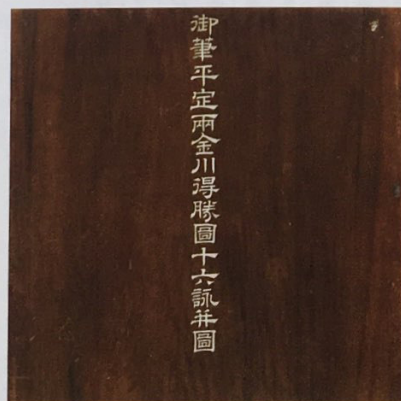 御筆平定兩金川得勝圖十六詠并圖